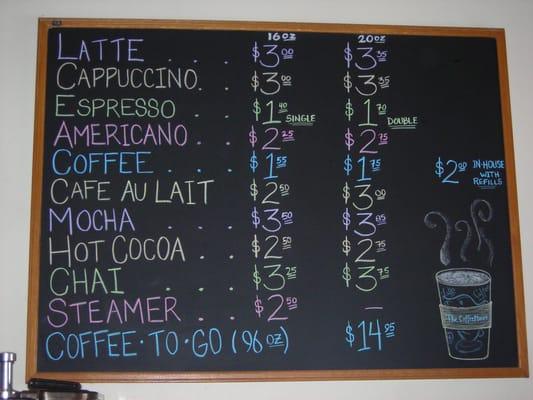 16oz 20oz
LATTE . . . $3.00 $3.35
CAPPUCCINO . . $3.00 $3.35
ESPRESSO . . $1.40 SINGLE $1.70 DOUBLE
AMERICANO . . $2.25 $2.75
COFFEE . . . $1.55 $1.75 $2.00 IN-HOUSE WITH REFILLS
CAFE AU LAIT $2.50 $3.00
MOCHA . . . $3.50
HOT COCOA . . $2.50 $2.75
CHAI . . . $3.25 $3.75
STEAMER . . $2.50 —
COFFEE·TO·GO (96oz) $14.95